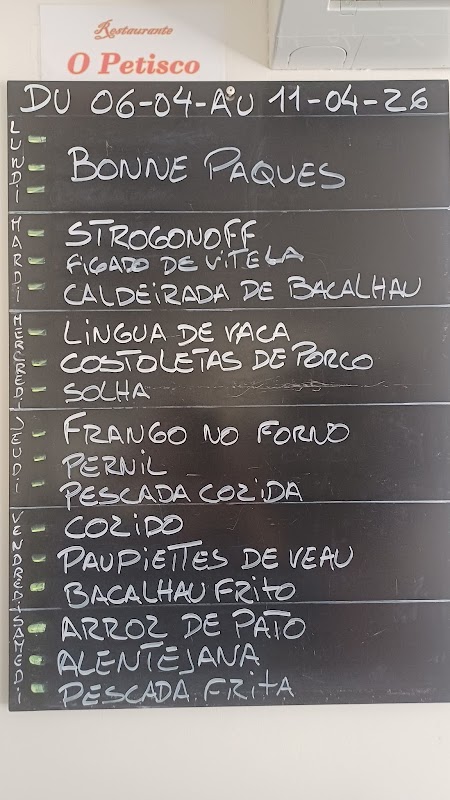 Restaurante
O Petisco
DU 06-04-AU 11-04-26
LUNDI
BONNE PAQUES
MARDI
STROGONOFF
FIGADO DE VITELA
CALDEIRADA DE BACALHAU
MERCREDI
LINGUA DE VACA
COSTOLETAS DE PORCO
SOLHA
JEUDI
FRANGO NO FORNO
PERNIL
PESCADA COZIDA
VENDREDI
COZIDO
PAUPIETTES DE VEAU
BACALHAU FRITO
SAMEDI
ARROZ DE PATO
ALENTEJANA
PESCADA FRITA